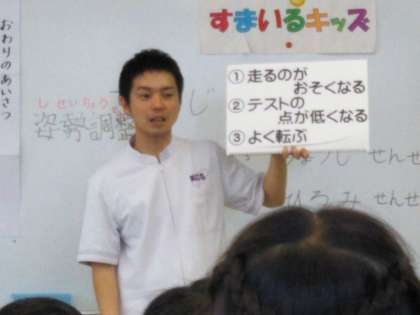 おわりのあいさつ
すまいるキッズ
①走るのが
おそくなる
②テストの
点が低くなる
③よく転ぶ
しせいちょう
姿勢調整
じ
せんせ
ひろみ せんせ